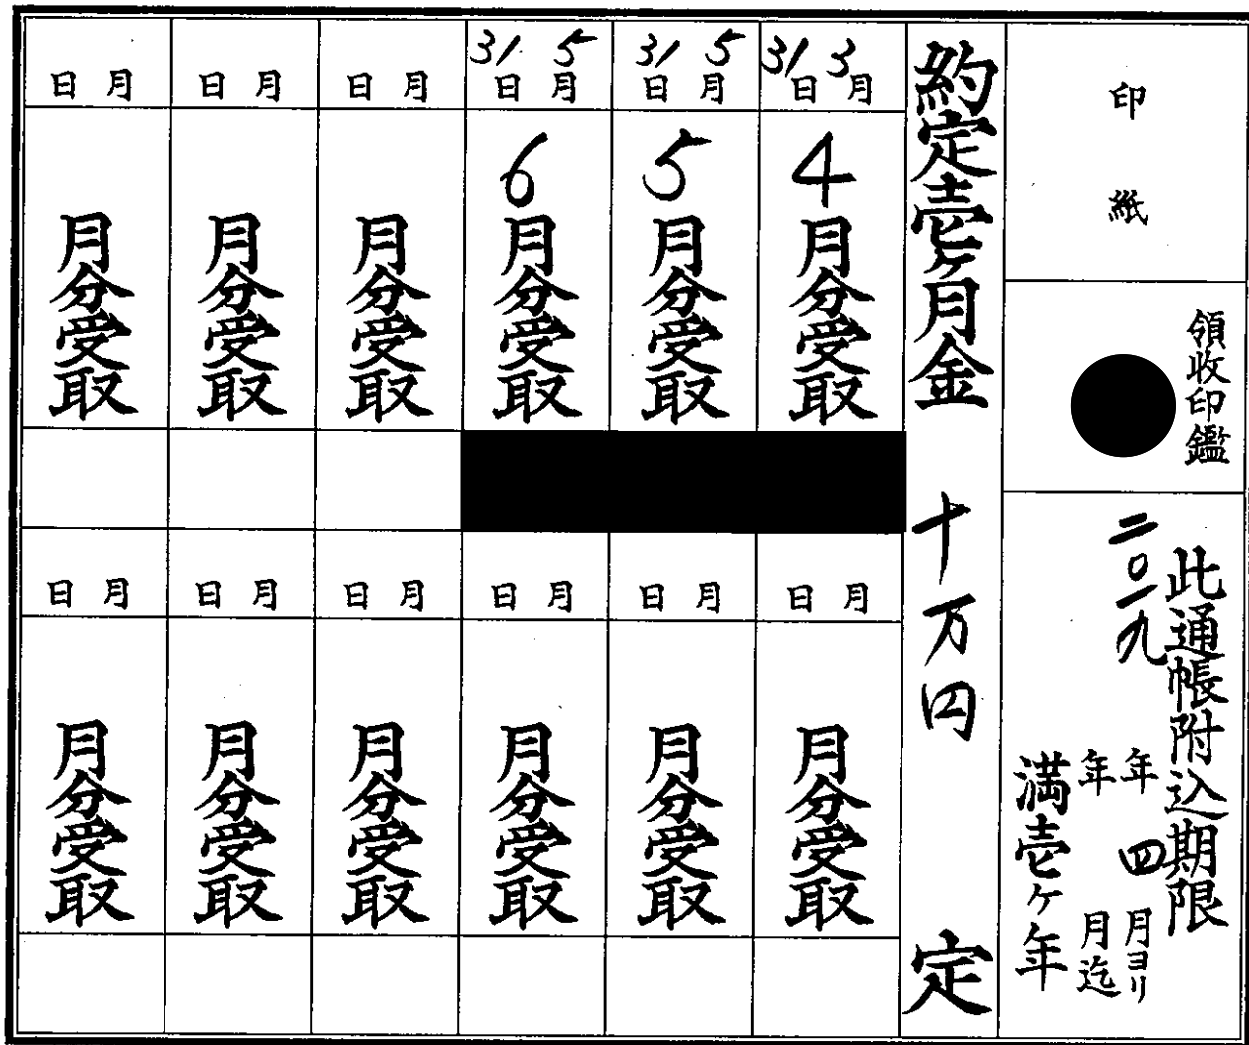 印紙
領收印鑑
此通帳附込期限
二〇一九年四月ヨリ
年 月迄
満壱ケ年
約定壱ケ月金 十万円 定
3月31日
4月分受取
5月31日
5月分受取
5月31日
6月分受取
月 日
月分受取
月 日
月分受取
月 日
月分受取
月 日
月分受取
月 日
月分受取
月 日
月分受取
月 日
月分受取
月 日
月分受取
月 日
月分受取